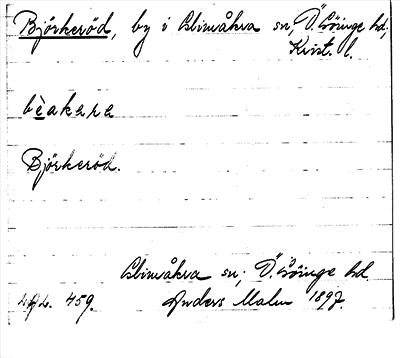 Björkeröd, by i Glimåkra sn, Ö. Göinge hd,
Krist. l.
bèakera
Björkeröd.
Glimåkra sn, Ö. Göinge hd.
459. Anders Malm 1897.